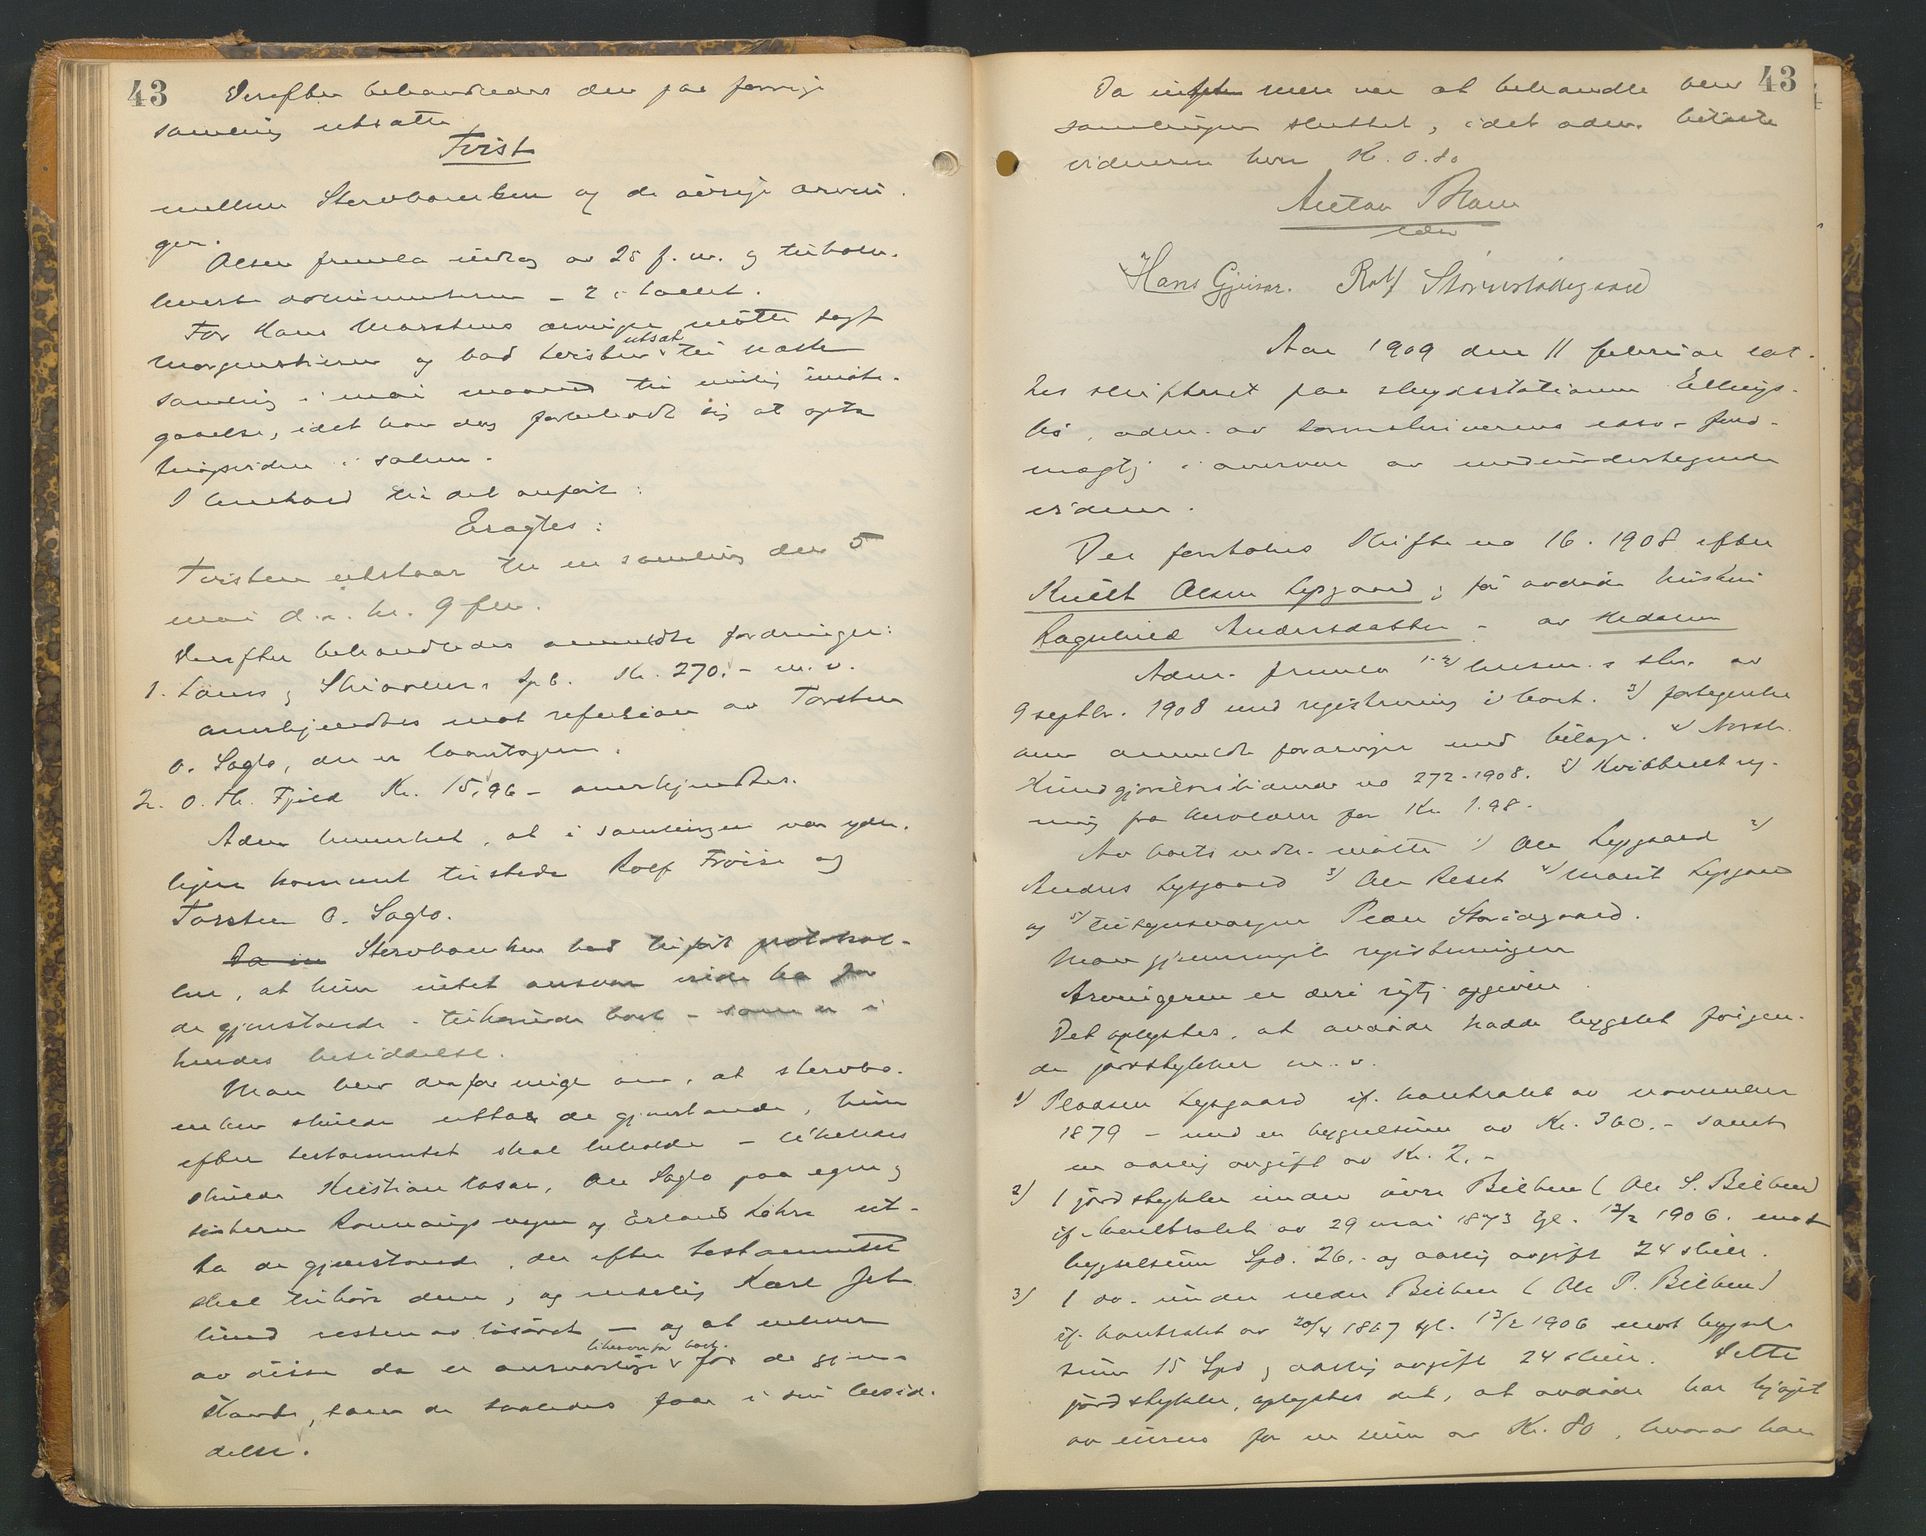 43
Derefter behandledes den paa forrige
samling utsatte
Tvist
mellem Stervboenken og de øvrige arvin-
ger.
Olsen fremla indlæg av 25 f. m. og tilbake-
leverte dokumenterne - 2 i tallet.
For Hans Marstens arvinger møtte sagf
Morgenstierne og bad tvisten utsat til næste
samling i mai maaned til mulig imøte-
gaaelse, idet han dog forbeholdt sig at opta
tvistens i saken.
I henhold til det anførte:
Eragtes:
Tvisten utstaar til en samling den 5
mai d. a. kl. 9 fm.
Derefter behandledes anmeldte fordringer:
1. Laans & Skiaker Spb. Kr. 270,- m. v.
anerkjendtes mot refusion av Torsten
O. Saglo, der er laantager.
2. O. Th. Fjeld Kr. 15,96 - anerkjendtes.
Adm. bemerket, at i samlingen var yder-
ligere kommet tilstede Rolf Frøise og
Torsten O. Saglo.
Da in Stervboenken bad tilført protokol-
len, at hun intet ansvar vilde ha for
de gjenstande - tilhørende boet - som er i
hendes besiddelse.
Man blev derfor enige om, at stervbo-
enken skulde utta de gjenstande, hun
efter testamentet skal beholde - likeledes
skulde Kristian Rosar, Ole Saglo paa egne og
søsterens Rønnaugs vegne og Erland Løkre ut-
ta de gjenstande, der efter testamentet
skal tilhøre dem, og endelig Karl Jet-
lund resten av løsøret - og at enhver
av disse da er ansvarlige likeovenfor boet for de gjen-
stande, som de saaledes faar i sin besid-
delse.
43
Da intet mere var at behandle blev
samlingen sluttet, idet adm. betalte
vidnerne hver Kr. 0.80
Anton Blom
edsv
Hans Gjeisar. Rolf Storusladegaard
Aar 1909 den 11 februar sat-
tes skifteret paa skydsstationen Ellings-
bø, adm. av sorenskriverens edsv. fuld-
mægtig i overvær av medundertegnede
vidner.
Der foretokes Skifte no 16. 1908 efter
Knut Olsen Lysgaard, før avdøde hustru
Ragnhild Andersdatter - av Hedalen
Adm. fremla 1-2) lensm.s skr. av
9 septbr. 1908 med registrering i boet. 3) fortegnelse
over anmeldte fordringer med bilage. 4) Norsk
Kundgjørelsestidende no 272-1908. 5) Kvitteret reg-
ning fra avisen for Kr. 1.98.
Av boets vedk. møtte 1) Ole Lysgaard 2)
Andres Lysgaard 3) Ole Reset 4) Marit Lysgaard
og 5) tilsynsvergen Peder Storidgaard.
Man gjennemgik registreringen
Arvingerne er deri rigtig opgiven.
Det oplystes, at avdøde hadde bygslet følgen-
de jordstykker m. v.
1) Pladsen Lysgaard if. kontrakt av november
1879 - med en bygselsum av Kr. 360.- samt
en aarlig avgift av Kr. 2.-
2) 1 jordstykke under øvre Beilben (Ole S. Beilben)
if. kontrakt av 29 mai 1873 tgl. 13/2 1906. mot
bygselsum Spd. 26.- og aarlig avgift 24 skill.
3) 1 do. under nedre Beilben (Ole P. Beilben)
if. kontrakt av 20/4 1867 tgl. 13/2 1906 mot bygsel-
sum 15 Spd og aarlig avgift 24 skill. Dette
jordstykke, oplystes det, at avdøde har kjøpt
av eieren for en sum av Kr. 80, hvorav han